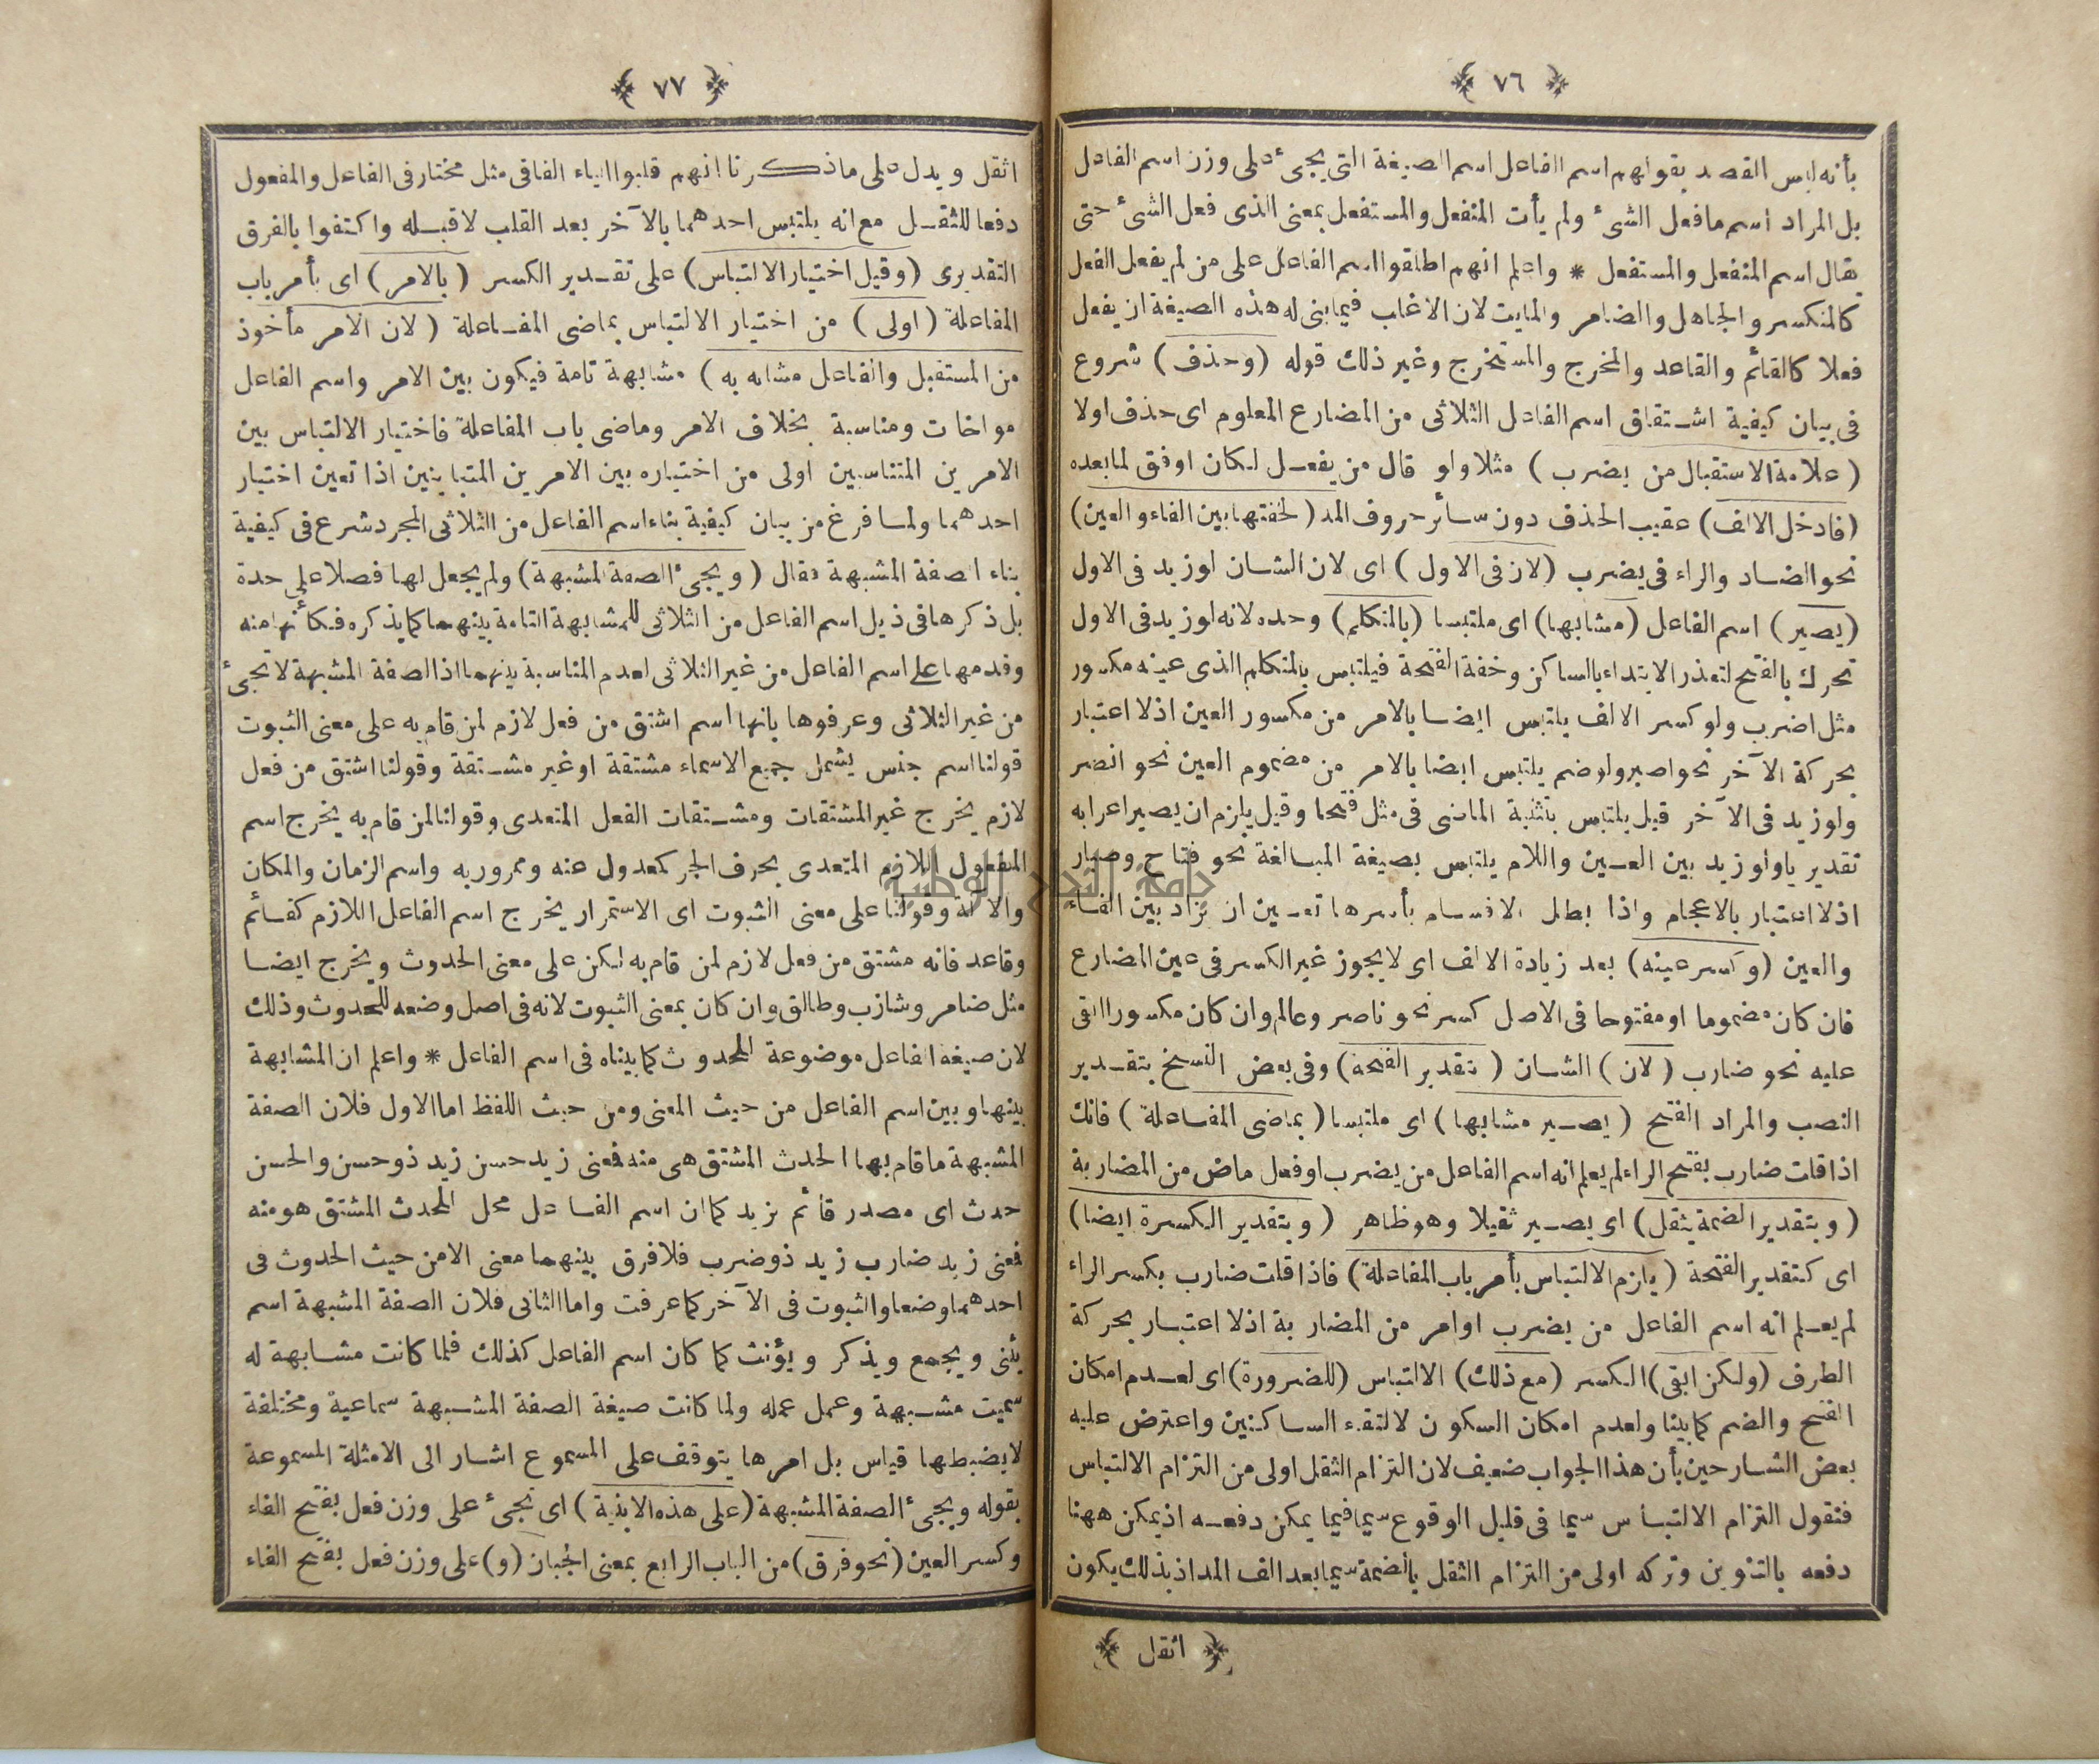 ﴿ ٧٦ ﴾
بأنه ليس القصد بقولهم اسم الفاعل اسم الصيغة التى يجىء على وزن اسم الفاعل
بل المراد اسم ما فعل الشىء ولم يأت المنفعل والمستفعل بمعنى الذى فعل الشىء حتى
يقال اسم المنفعل والمستفعل * واعلم انهم اطلقوا اسم الفاعل على من لم يفعل الفعل
كالمنكسر والجاهل والضامر والمايت لان الاغاب فيما بنى له هذه الصيغة ان يفعل
فعلا كالقائم والقاعد والمخرج والمستخرج وغير ذلك قوله (وحذف) شروع
فى بيان كيفية اشتقاق اسم الفاعل الثلاثى من المضارع المعلوم اى حذف اولا
(علامة الاستقبال من يضرب) مثلا ولو قال من يفعل لكان اوفق لما بعده
(فادخل الالف) عقيب الحذف دون سائر حروف المد (لخفتها بين الفاء والعين)
نحو الضاد والراء فى يضرب (لان فى الاول) اى لان الشان لو زيد فى الاول
(يصير) اسم الفاعل (مشابها) اى ملتبسا (بالمتكلم) وحده لانه لو زيد فى الاول
تحرك بالفتح لتعذر الابتداء بالساكن وخفة الفتحة فيلتبس بالمتكلم الذى عينه مكسور
مثل اضرب ولو كسر الالف يلتبس ايضا بالامر من مكسور العين اذ لا اعتبار
بحركة الآخر نحو اصبر ولو ضم يلتبس ايضا بالامر من مضموم العين نحو انصر
ولو زيد فى الآخر قيل يلتبس بتثنية الماضى فى مثل فتحا وقيل يلزم ان يصير اعرابه
تقدير يا ولو زيد بين العين واللام يلتبس بصيغة المبالغة نحو فتاح وصبار
اذ لا اعتبار بالاعجام واذا بطل الاقسام بأسرها تعين ان يزاد بين الفاء
والعين (وكسر عينه) بعد زيادة الالف اى لا يجوز غير الكسر فى عين المضارع
فان كان مضموما او مفتوحا فى الاصل كسر نحو ناصر وعالم وان كان مكسورا ابقى
عليه نحو ضارب (لان) الشان (بتقدير الفتحة) وفى بعض النسخ بتقدير
النصب والمراد الفتح (يصير مشابها) اى ملتبسا (بماضى المفاعلة) فانك
اذا قلت ضارب بفتح الراء لم يعلم انه اسم الفاعل من يضرب او فعل ماض من المضاربة
(وبتقدير الضمة يثقل) اى يصير ثقيلا وهو ظاهر (وبتقدير الكسرة ايضا)
اى كتقدير الفتحة (يلزم الالتباس بأمر باب المفاعلة) فاذا قلت ضارب بكسر الراء
لم يعلم انه اسم الفاعل من يضرب او امر من المضاربة اذ لا اعتبار بحركة
الطرف (ولكن ابقى) الكسر (مع ذلك) الالتباس (للضرورة) اى لعدم امكان
الفتح والضم كما بينا ولعدم امكان السكون لالتقاء الساكنين واعترض عليه
بعض الشارحين بأن هذا الجواب ضعيف لان التزام الثقل اولى من التزام الالتباس
فنقول التزام الالتباس سيما فى قليل الوقوع سيما فيما يمكن دفعه اذ يمكن ههنا
دفعه بالتنوين وتركه اولى من التزام الثقل بالضمة سيما بعد الف المد اذ بذلك يكون
﴿ اثقل ﴾
﴿ ٧٧ ﴾
اثقل ويدل على ما ذكرنا انهم قلبوا الياء الفا فى مثل مختار فى الفاعل والمفعول
دفعا للثقل مع انه يلتبس احدهما بالآخر بعد القلب لا قبله واكتفوا بالفرق
التقديرى (وقيل اختيار الالتباس) على تقدير الكسر (بالامر) اى بأمر باب
المفاعلة (اولى) من اختيار الالتباس بماضى المفاعلة (لان الامر مأخوذ
من المستقبل والفاعل مشابه به) مشابهة تامة فيكون بين الامر واسم الفاعل
مواخات ومناسبة بخلاف الامر وماضى باب المفاعلة فاختيار الالتباس بين
الامرين المتناسبين اولى من اختياره بين الامرين المتباينين اذا تعين اختيار
احدهما ولما فرغ من بيان كيفية بناء اسم الفاعل من الثلاثى المجرد شرع فى كيفية
بناء الصفة المشبهة فقال (ويجىء الصفة المشبهة) ولم يجعل لها فصلا على حدة
بل ذكرها فى ذيل اسم الفاعل من الثلاثى للمشابهة التامة بينهما كما يذكره فكأنها منه
وقدمها على اسم الفاعل من غير الثلاثى لعدم المناسبة بينهما اذ الصفة المشبهة لا تجىء
من غير الثلاثى وعرفوها بانها اسم اشتق من فعل لازم لمن قام به على معنى الثبوت
قولنا اسم جنس يشمل جميع الاسماء مشتقة او غير مشتقة وقولنا اشتق من فعل
لازم يخرج غير المشتقات ومشتقات الفعل المتعدى وقولنا لمن قام به يخرج اسم
المفعول اللازم المتعدى بحرف الجر كمعدول عنه وممرور به واسم الزمان والمكان
والآلة وقولنا على معنى الثبوت اى الاستمرار يخرج اسم الفاعل اللازم كقائم
وقاعد فانه مشتق من فعل لازم لمن قام به لكن على معنى الحدوث ويخرج ايضا
مثل ضامر وشازب وطالق وان كان بمعنى الثبوت لانه فى اصل وضعه للحدوث وذلك
لان صيغه الفاعل موضوعة للحدوث كما بيناه فى اسم الفاعل * واعلم ان المشابهة
بينها وبين اسم الفاعل من حيث المعنى ومن حيث اللفظ اما الاول فلان الصفة
المشبهة ما قام بها الحدث المشتق هى منه فمعنى زيد حسن زيد ذو حسن والحسن
حدث اى مصدر قائم بزيد كما ان اسم الفاعل محل الحدث المشتق هو منه
فمعنى زيد ضارب زيد ذو ضرب فلا فرق بينهما معنى الا من حيث الحدوث فى
احدهما وضعا والثبوت فى الآخر كما عرفت واما الثانى فلان الصفة المشبهة اسم
يثنى ويجمع ويذكر ويؤنث كما كان اسم الفاعل كذلك فلما كانت مشابهة له
سميت مشبهة وعمل عمله ولما كانت صيغة الصفة المشبهة سماعية ومختلفة
لا يضبطها قياس بل امرها يتوقف على المسموع اشار الى الامثلة المسموعة
بقوله ويجىء الصفة المشبهة (على هذه الابنية) اى تجىء على وزن فعل بفتح الفاء
وكسر العين (نحو فرق) من الباب الرابع بمعنى الجبان (و) على وزن فعل بفتح الفاء
جامعة النجاح الوطنية